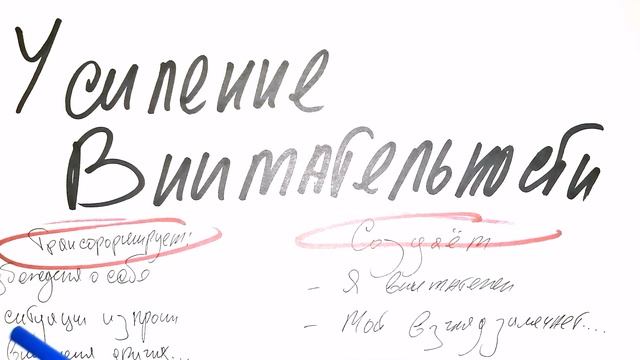 Усиление
Внимательности
Трансформирует:
Создаёт
о себе
- Я внимателен
ситуации из прош
- Мой взгляд замечает...
других...